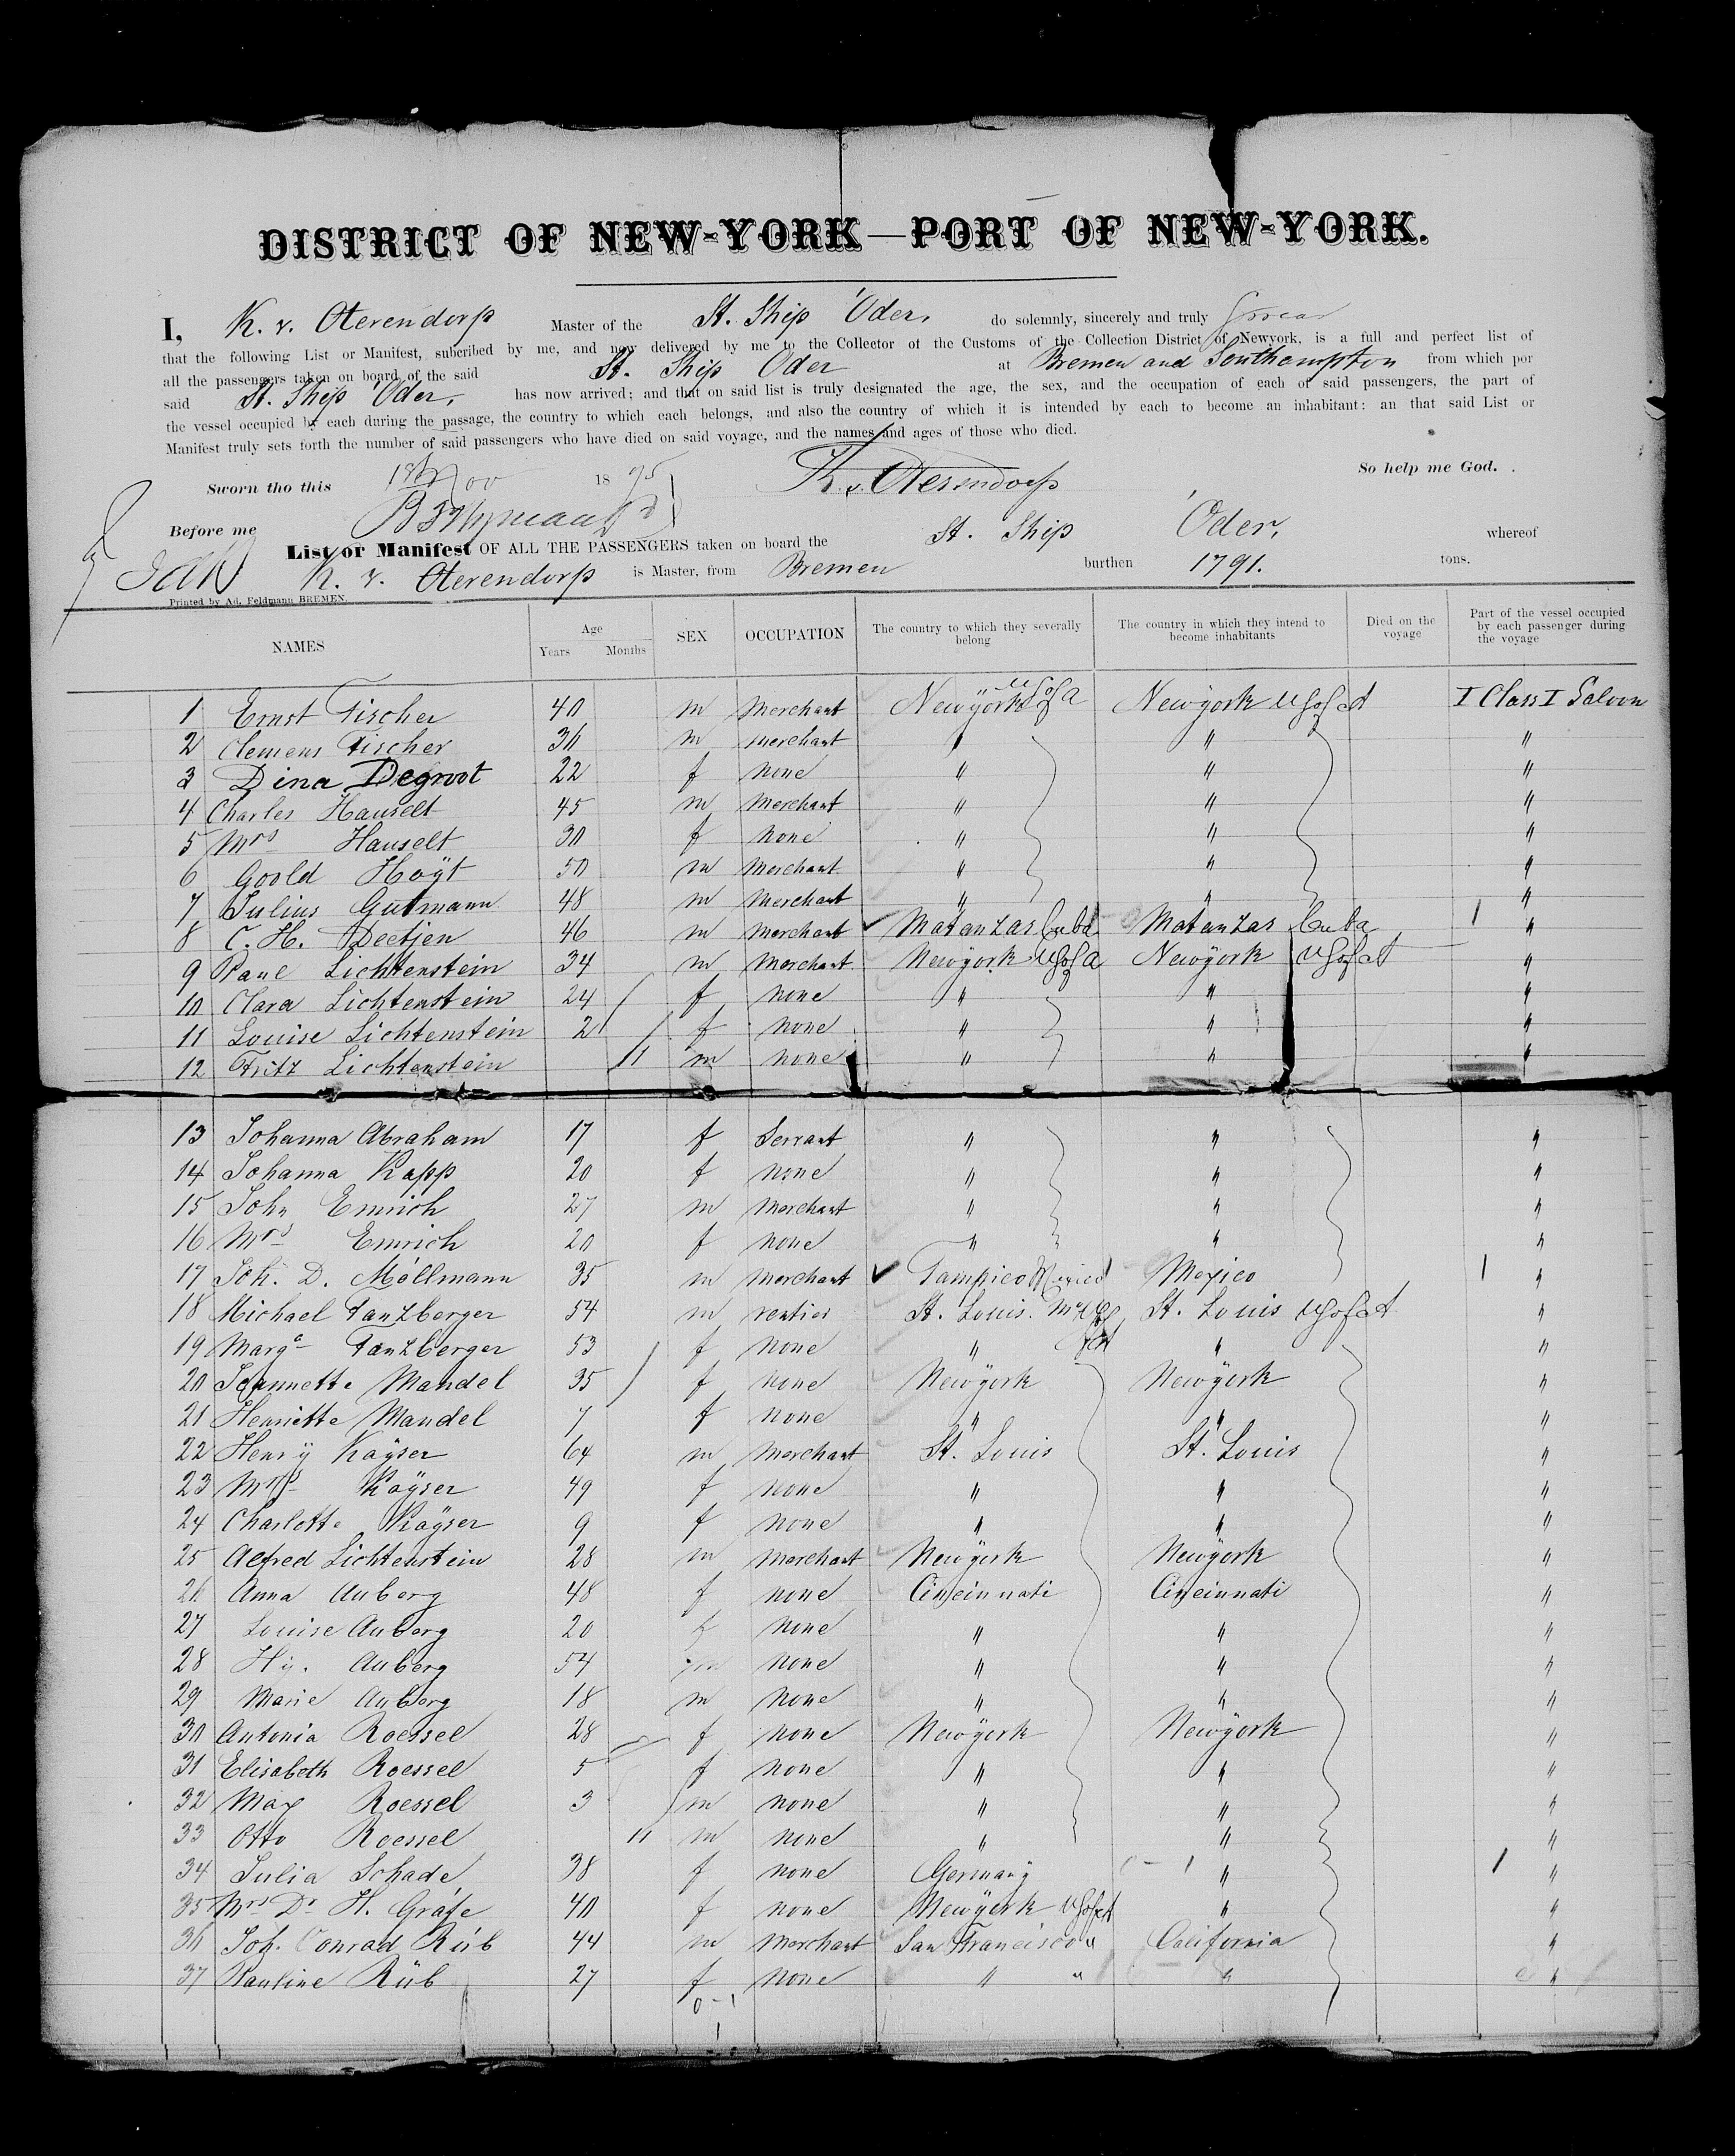 DISTRICT OF NEW-YORK—PORT OF NEW-YORK.
I, K. v. Oterendorp Master of the St. Ship Oder, do solemnly, sincerely and truly swear
that the following List or Manifest, subcribed by me, and now delivered by me to the Collector of the Customs of the Collection District of Newyork, is a full and perfect list of
all the passengers taken on board of the said St. Ship Oder at Bremen and Southampton from which por
said St. Ship Oder, has now arrived; and that on said list is truly designated the age, the sex, and the occupation of each of said passengers, the part of
the vessel occupied by each during the passage, the country to which each belongs, and also the country of which it is intended by each to become an inhabitant: an that said List or
Manifest truly sets forth the number of said passengers who have died on said voyage, and the names and ages of those who died.
So help me God.
Sworn tho this 18 Nov 1875 K. v. Oterendorp
Before me
List or Manifest OF ALL THE PASSENGERS taken on board the St. Ship Oder, whereof
K. v. Oterendorp is Master, from Bremen burthen 1791. tons.
Printed by Ad. Feldmann BREMEN.
NAMES Age Years Months SEX OCCUPATION The country to which they severally belong The country in which they intend to become inhabitants Died on the voyage Part of the vessel occupied by each passenger during the voyage
1 Ernst Fischer 40 m Merchant Newÿork U S of A Newÿork U S of A I Class I Saloon
2 Clemens Fischer 30 m merchant " " "
3 Dina Degroot 22 f none " " "
4 Charles Hauselt 45 m Merchant " " "
5 Mrs Hauselt 30 f none " " "
6 Goold Hoÿt 50 m Merchant " " "
7 Julius Gutmann 48 m Merchant " " "
8 C. H. Deetjen 46 m Merchant Matanzas Cuba Matanzas Cuba 1 "
9 Paul Lichtenstein 34 m Merchant Newÿork U S of A Newÿork U S of A "
10 Clara Lichtenstein 24 f none " " "
11 Louise Lichtenstein 2 f none " " "
12 Fritz Lichtenstein 11 m none " " "
13 Johanna Abraham 17 f Servant " " "
14 Johanna Kapp 20 f none " " "
15 John Emrich 27 m Merchant " " "
16 Mrs Emrich 20 f none " " "
17 Joh. D. Möllmann 35 m Merchant Tampico Mexico Mexico 1 "
18 Michael Tanzberger 54 m rentier St. Louis. St. Louis U S of A "
19 Marge Tanzberger 53 f none " " "
20 Jeannette Mandel 35 f none Newÿork Newÿork "
21 Henriette Mandel 7 f none " " "
22 Henrÿ Kaÿser 64 m Merchant St. Louis St. Louis "
23 Mrs Kaÿser 49 f none " " "
24 Charlotte Kaÿser 9 f none " " "
25 Alfred Lichtenstein 28 m Merchant Newÿork Newÿork "
26 Anna Auberg 48 f none Cincinnati Cincinnati "
27 Louise Auberg 20 f none " " "
28 Hÿ. Auberg 54 m none " " "
29 Marie Auberg 18 m none " " "
30 Antonia Roessel 28 f none Newÿork Newÿork "
31 Elisabeth Roessel 5 f none " " "
32 Max Roessel 3 m none " " "
33 Otto Roessel 11 m none " " "
34 Julia Schade 38 f none Germanÿ " 1 "
35 Mrs Dr H. Gräfe 40 f none Newÿork U S of A " "
36 Joh. Conrad Rüb 44 m Merchant San Francisco " California "
37 Pauline Rüb 27 f none " " " "
0 - 1